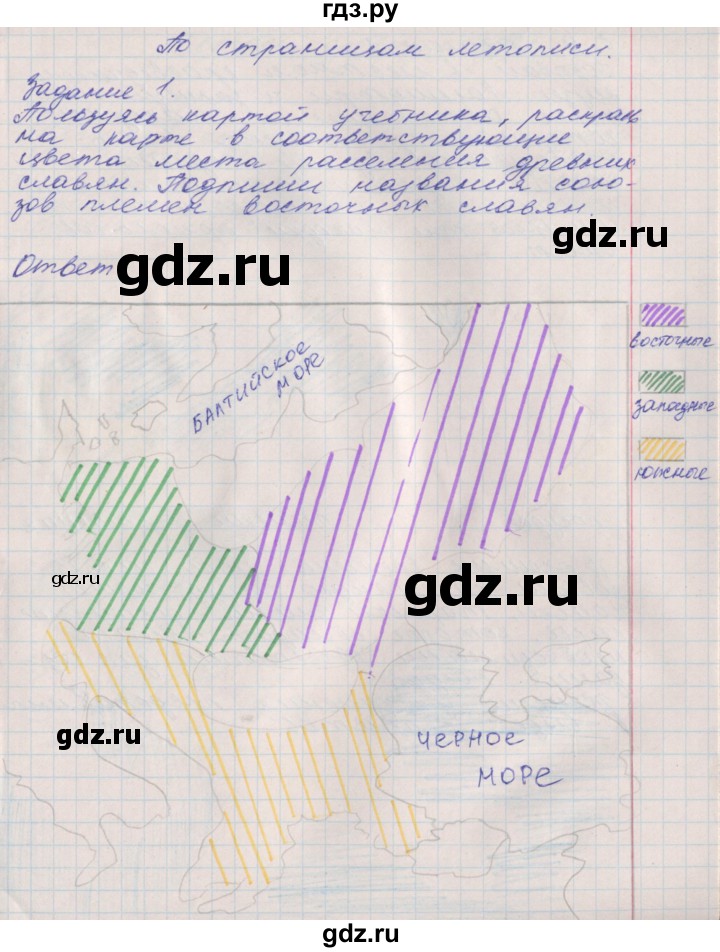 гдз.ру
По страницам летописи.
Задание 1.
Пользуясь картой учебника, раскрась
на карте в соответствующие
цвета места расселения древних
славян. Подпиши названия сою-
зов племен восточных славян.
gdz.ru
Ответ
gdz.ru
восточные
БАЛТИЙСКОЕ
МОРЕ
западные
южные
gdz.ru
gdz.ru
gdz.ru
ЧЕРНОЕ
МОРЕ
gdz.ru
gdz.ru